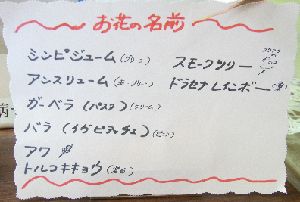 お花の名前
シンピジューム(グリーン)
アンスリューム
ガーベラ(パスタ)
バラ(イヴピアッチェ)(ピンク)
アワ
トルコキキョウ
スモークツリー
ドラセナレインボー